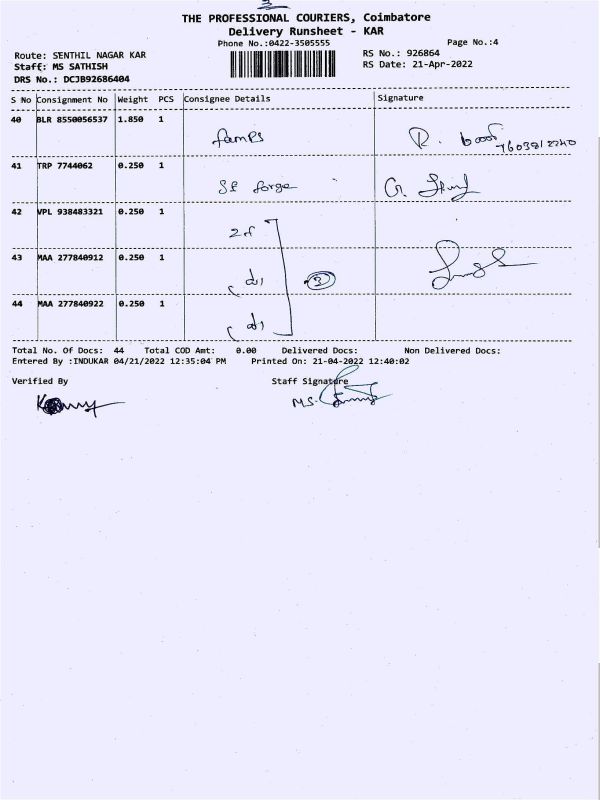 THE PROFESSIONAL COURIERS, Coimbatore
Delivery Runsheet - KAR
Phone No.:0422-3505555
Page No.:4
Route: SENTHIL NAGAR KAR
RS No.: 926864
Staff: MS SATHISH
RS Date: 21-Apr-2022
DRS No.: DCJB92686404
S No Consignment No Weight PCS Consignee Details Signature
40 BLR 8550056537 1.850 1
7603812240
41 TRP 7744062 0.250 1 forge
42 VPL 938483321 0.250 1
43 MAA 277840912 0.250 1 3
44 MAA 277840922 0.250 1
Total No. Of Docs: 44 Total COD Amt: 0.00 Delivered Docs: Non Delivered Docs:
Entered By :INDUKAR 04/21/2022 12:35:04 PM Printed On: 21-04-2022 12:40:02
Verified By Staff Signature
MS.